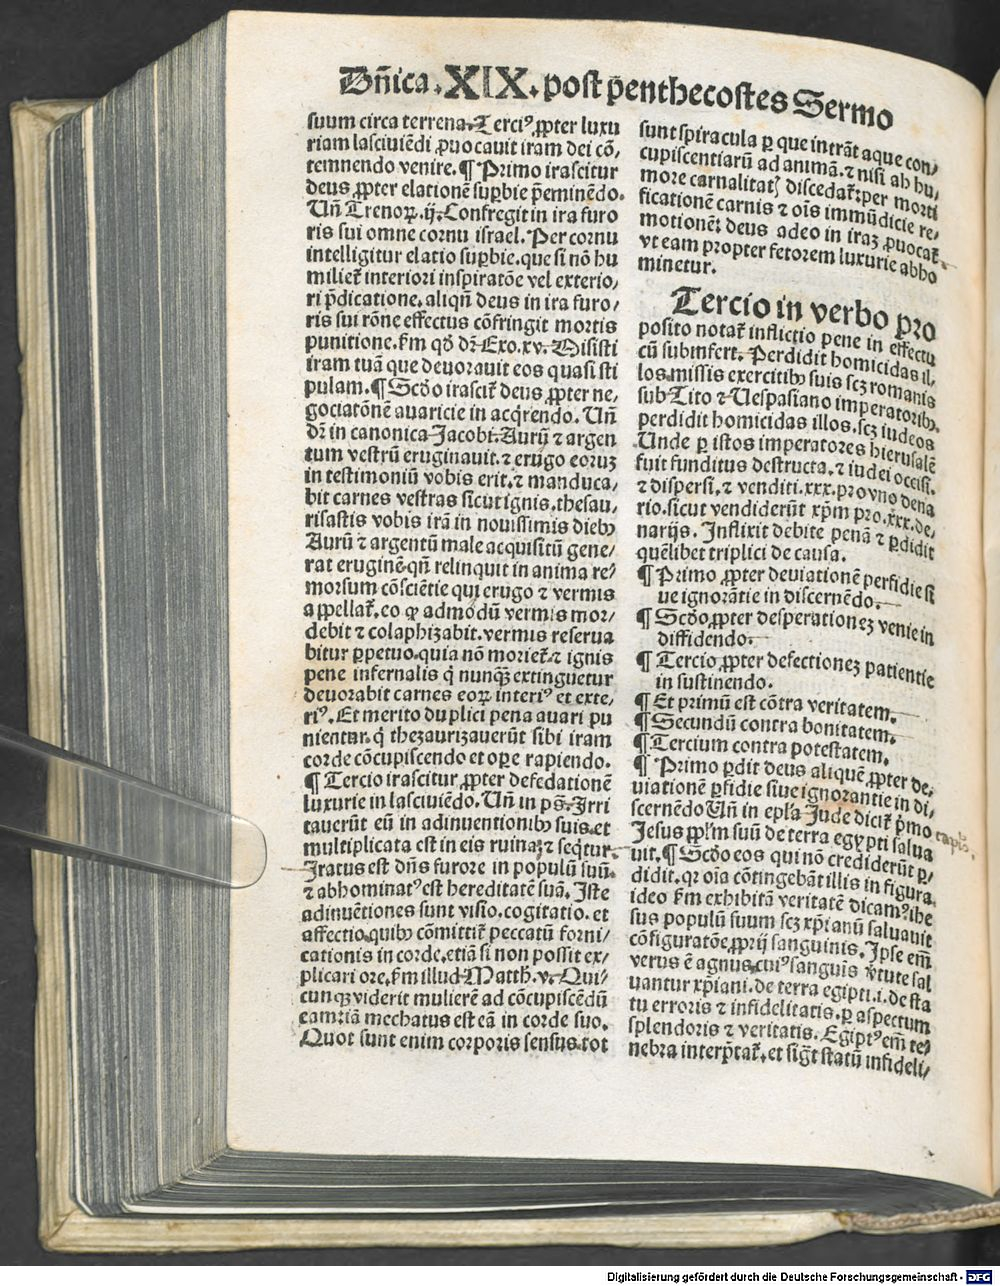 Dñica. XIX. post pẽnthecostes Sermo
suum circa terrena. Terci⁹ ꝓpter luxu
riam lasciuiẽdi ꝓuocauit iram dei cõ/
temnendo venire. ¶ Primo irascitur
deus ꝓpter elationẽ suꝑbie p̃eminẽdo.
Uñ Trenoꝝ. ij. Confregit in ira furo
ris sui omne cornu israel. Per cornu
intelligitur elatio suꝑbie. que si nõ hu
milief̃ interiori inspiratõe vel exterio/
ri p̃dicatione. aliqñ deus in ira furo/
ris sui rõne effectus cõfringit mortis
punitione. ẜm qđ dr̃ Exo. xv. Misisti
iram tuã que deuorauit eos quasi sti
pulam. ¶ Scđo irascit̃ deus ꝓpter ne/
gociatõnẽ auaricie in acq̃rendo. Uñ
dr̃ in canonica Jacobi. Aurũ ⁊ argen
tum vestrũ eruginauit. ⁊ erugo eoruꝫ
in testimoniũ vobis erit. ⁊ manduca/
bit carnes vestras sicut ignis. thesau/
risastis vobis irã in nouissimis diebꝰ
Aurũ ⁊ argentũ male acquisitũ gene/
rat eruginẽ. qñ relinquit in anima re/
morsum cõsciẽtie qui erugo ⁊ vermis
appellat̃. eo ꝙ admodũ vermis mor/
debit ⁊ colaphizabit. vermis reserua
bitur ꝑpetuo. quia nõ moriet̃. ⁊ ignis
pene infernalis q̃ nunqꝫ extinguetur
deuorabit carnes eoꝝ interi⁹ et exte/
ri⁹. Et merito duplici pena auari pu
nientur. q̃ thezaurizauerũt sibi iram
corde cõcupiscendo et oꝑe rapiendo.
¶ Tercio irascitur ꝓpter defedationẽ
luxurie in lasciuiẽdo. Uñ in ps. Irri
tauerũt eũ in adinuentionibꝰ suis. et
multiplicata est in eis ruina; ⁊ seq̃tur.
Iratus est dñs furore in populũ suũ.
⁊ abhominat⁹ est hereditatẽ suã. Iste
adinuẽtiones sunt visio. cogitatio. et
affectio. quibꝰ cõmittit̃ peccatũ forni/
cationis in corde. etiã si non possit ex/
plicari ore. ẜm illud Matth. v. Qui/
cunqꝫ viderit mulierẽ ad cõcupiscẽdũ
eam iã mechatus est eã in corde suo.
Quot sunt enim corporis sensus. tot
sunt spiracula ꝑ que intrãt aque con/
cupiscentiarũ ad animã. ⁊ nisi ab hu/
more carnalitatꝭ discedat̃: per morti
ficationẽ carnis ⁊ oĩs immũdicie re/
motionẽ: deus adeo in iraꝫ ꝓuocat̃.
vt eam propter fetorem luxurie abho
minetur.
Tercio in verbo pro
posito notat̃ inflictio pene in effectu
cũ subinfert. Perdidit homicidas il/
los. missis exercitibꝰ suis scꝫ romanis
sub Tito ⁊ Uespasiano imperatoribꝰ.
perdidit homicidas illos. scꝫ iudeos
Unde ꝑ istos imperatores hierusalẽ
fuit funditus destructa. ⁊ iudei occisi.
⁊ dispersi. ⁊ venditi. xxx. pro vno dena
rio. sicut vendiderũt xp̃m pro. xxx. de/
narijs. Inflixit debite penã ⁊ ꝑdidit
quẽlibet triplici de causa.
¶ Primo ꝓpter deuiationẽ perfidie si
ue ignorãtie in discernẽdo.
¶ Scđo ꝓpter desperationeꝫ venie in
diffidendo.
¶ Tercio ꝓpter defectioneꝫ patientie
in sustinendo.
¶ Et primũ est cõtra veritatem.
¶ Secundũ contra bonitatem.
¶ Tercium contra potestatem.
¶ Primo ꝑdit deus aliquẽ ꝓpter de/
uiationẽ ꝑfidie siue ignorantie in di/
scernẽdo Uñ in epl'a Jude dicit̃ p̃mo
capl̃o.
Jesus ppl'm suũ de terra egypti salua
uit. ¶ Scđo eos qui nõ crediderũt ꝑ/
didit. qꝛ oĩa cõtingebãt illis in figura.
ideo ẜm exhibitã veritatẽ dicam⁹. ihe
sus populũ suum scꝫ xp̃ianũ saluauit
cõfiguratõe ꝓprij sanguinis. Ipse em̃
verus ẽ agnus. cui⁹ sanguis ṽtute sal
uantur xp̃iani. de terra egipti. i. de sta
tu erroris ⁊ infidelitatis. ꝑ aspectum
splendoris ⁊ veritatis. Egipt⁹ em̃ te/
nebra interp̃tat̃. et sig̃t statũ infideli/
Digitalisierung gefördert durch die Deutsche Forschungsgemeinschaft - DFG